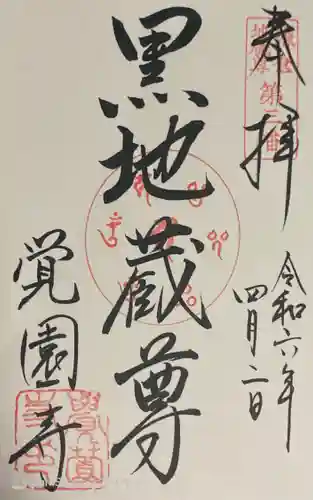 奉拝
第三番
令和六年
四月二日
黒地蔵尊
覚園寺